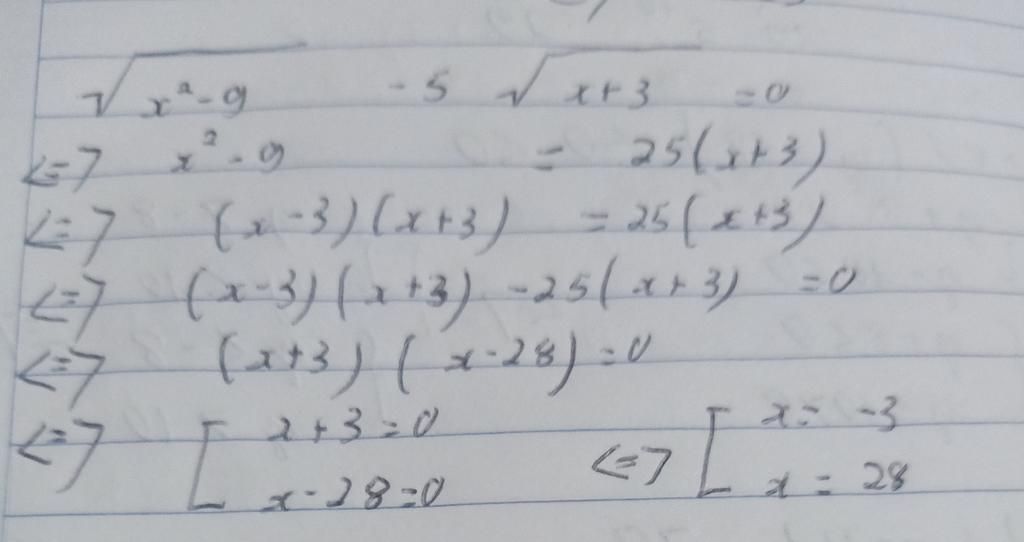 √(x² - 9) - 5 √(x + 3) = 0
<=> x² - 9 = 25(x + 3)
<=> (x - 3)(x + 3) = 25(x + 3)
<=> (x - 3)(x + 3) - 25(x + 3) = 0
<=> (x + 3)(x - 28) = 0
<=> [ x + 3 = 0 <=> [ x = -3
x - 28 = 0 x = 28